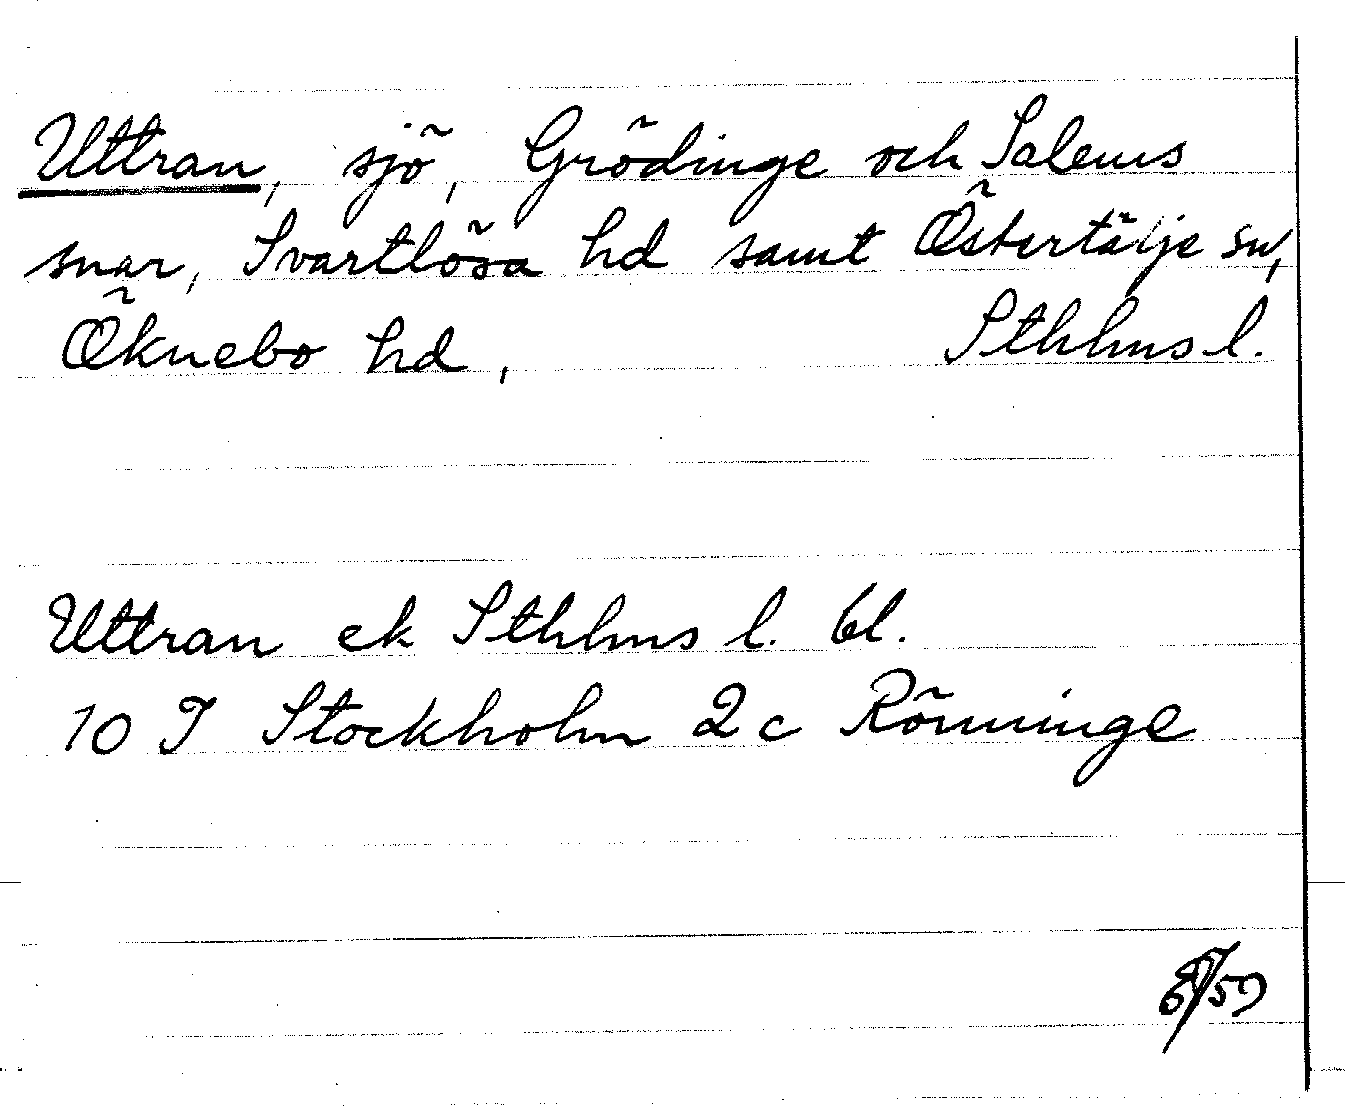 Uttran, sjö, Grödinge och Salems
snar, Svartlösa hd samt Östertälje sn,
Öknebo hd, Sthlms l.
Uttran ek Sthlms l. bl.
10 I Stockholm 2 c Rönninge